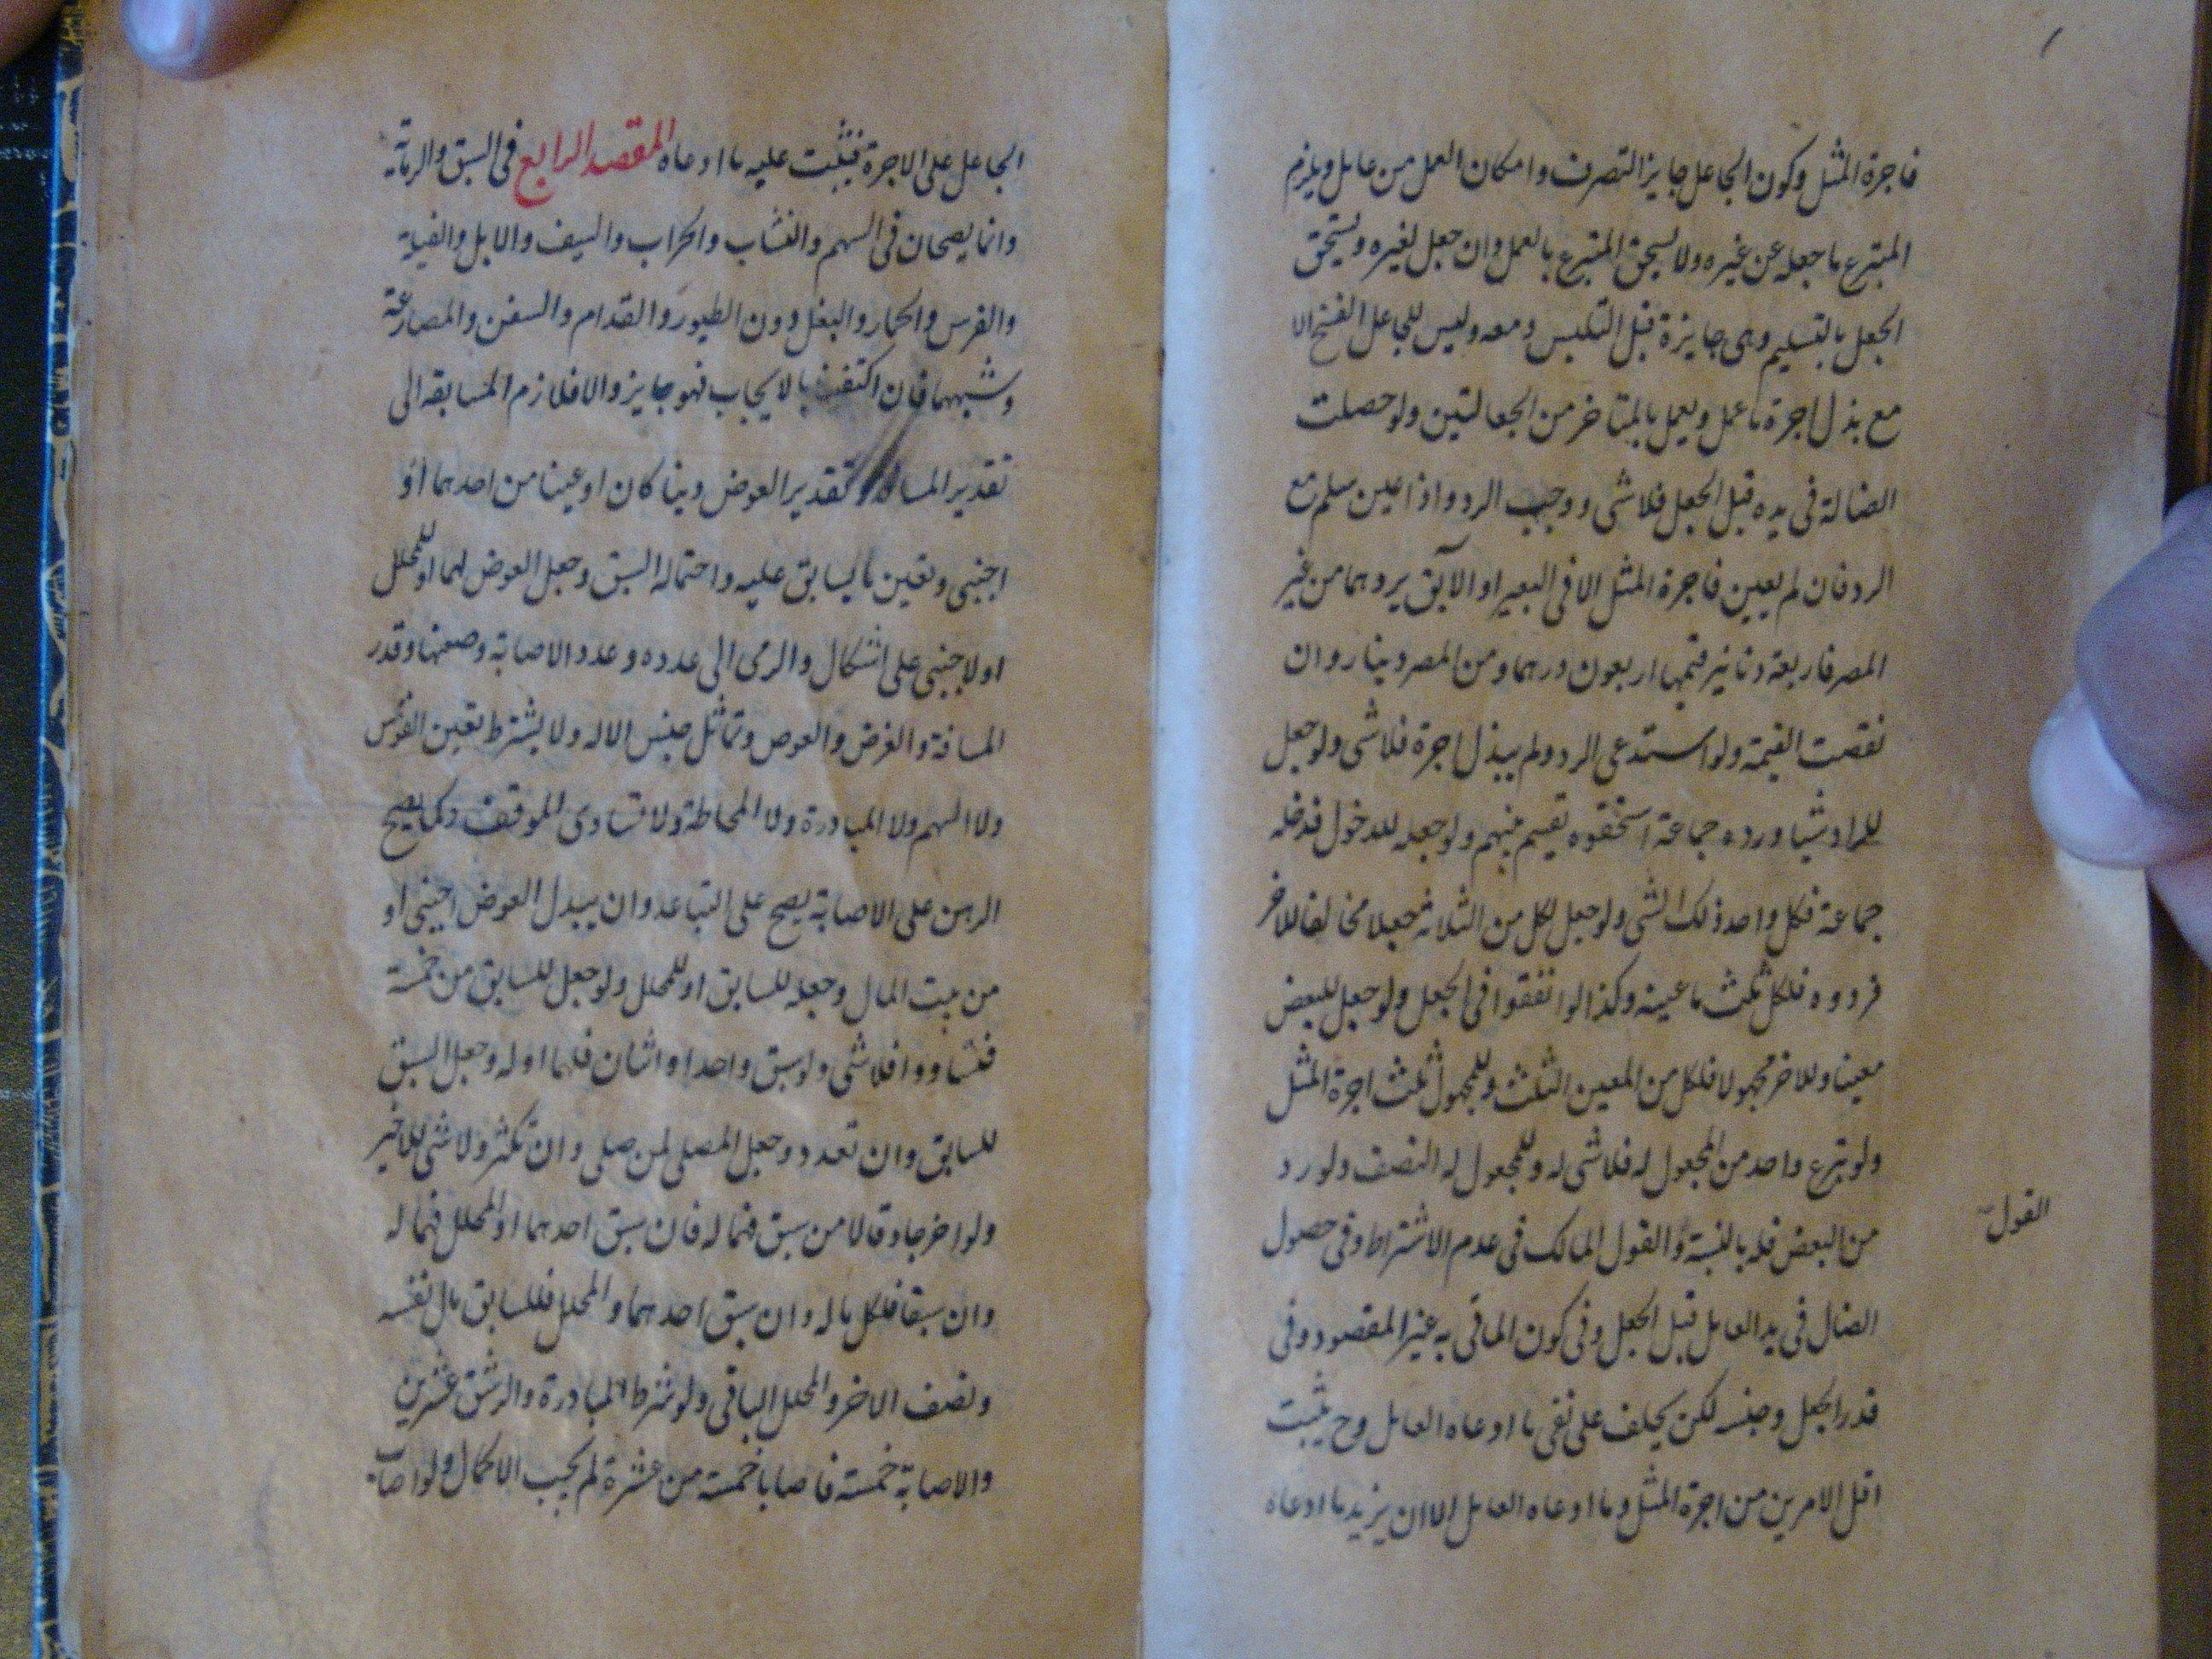 فاجرة المثل وكون الجاعل جايز التصرف وامكان العمل من عامل ويلزم
المتبرع ما جعله عن غيره ولا يستحق المتبرع بالعمل وان جعل لغيره ويستحق
الجعل بالتسليم وهى جايزة قبل التلبس ومعه وليس للجاعل الفسخ الا
مع بذل اجرة ما عمل ويعمل بالمتاخر من الجعالتين ولو حصلت
الضالة فى يده قبل الجعل فلا شى ووجب الرد واذا عين سلم مع
الرد فان لم يعين فاجرة المثل الا فى البعير او الآبق يردهما من غير
المصر فاربعة دنانير قيمتها اربعون درهما ومن المصر دينار وان
نقصت القيمة ولو استدعى الرد ولم يبذل اجرة فلا شى ولو جعل
للراد شيا ورده جماعة استحقوه تقسيم بينهم ولو جعله للدخول فدخله
جماعة فلكل واحد ذلك الشى ولو جعل لكل من الثلاثة جعلا مخالفا للاخر
فردوه فلكل ثلث ما عينه وكذا لو اتفقوا فى الجعل ولو جعل للبعض
معينا وللاخر مجهولا فلكل من المعين الثلث وللمجهول ثلث اجرة المثل
ولو تبرع واحد من المجعول له فلا شى له وللمجعول له النصف ولو رد
من البعض فله بالنسبة والقول المالك فى عدم الاشتراط وفى حصول
القول
الضال فى يد العامل قبل الجعل وفى كون الماتى به غير المقصود وفى
قدر الجعل وجنسه لكن يحلف على نفى ما ادعاه العامل وح يثبت
اقل الامرين من اجرة المثل وما ادعاه العامل الا ان يزيد ما ادعاه
الجاعل على الاجرة فيثبت عليه ما ادعاه المقصد الرابع فى السبق والرماية
وانما يصحان فى السهم والنشاب والحراب والسيف والابل والفيلة
والفرس والحمار والبغل دون الطيور والقدام والسفن والمصارعة
وشبهها فان اكتفينا بالايجاب فهو جايز والا فلازم المسابقه الى
تقدير المسافة وتقدير العوض دينا كان او عينا من احدهما او
اجنبى وتعين ما يسابق عليه واحتماله السبق وجعل العوض لهما او للمحلل
او لاجنبى على اشكال والرمى الى عدده وعدد الاصابة وصفتها وقدر
المسافة والغرض والعوض وتماثل جنس الاله ولا يشترط تعين القوس
ولا السهم ولا المبادرة ولا المحاطة ولا تساوى الموقف وكما يصح
الرهن على الاصابة يصح على التباعد وان يبذل العوض اجنبى او
من بيت المال وجعله للسابق او للمحلل ولو جعل للسابق من خمسة
فتساووا فلا شى ولو سبق واحد او اثنان فلهما او له وجعل السبق
للسابق وان تعدد وجعل المصلى لمن صلى وان تكثر ولا شى للاخير
ولو اخرجا وقالا من سبق فهما له فان سبق احدهما او المحلل فهما له
وان سبقا فلكل ماله وان سبق احدهما والمحلل فللسابق مال نفسه
ونصف الاخر والمحلل الباقى ولو شرط المبادرة والرشق عشرين
والاصابة خمسة فاصابا خمسة من عشرة لم يجب الاكمال ولو اصاب